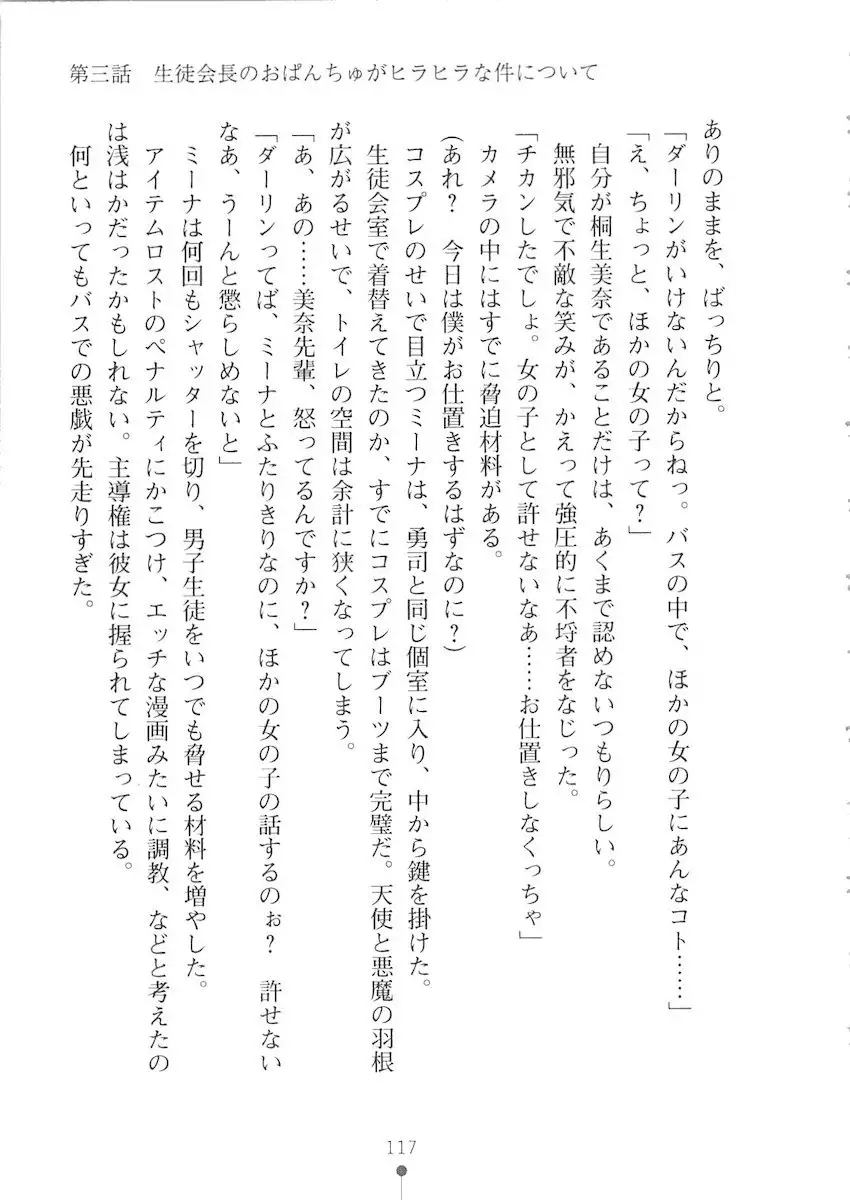 第三話　生徒会長のおぱんちゅがヒラヒラな件について
ありのままを、ばっちりと。
「ダーリンがいけないんだからねっ。バスの中で、ほかの女の子にあんなコト……」
「え、ちょっと、ほかの女の子って？」
自分が桐生美奈であることだけは、あくまで認めないつもりらしい。
無邪気で不敵な笑みが、かえって強圧的に不埒者をなじった。
「チカンしたでしょ。女の子として許せないなあ……お仕置きしなくっちゃ」
カメラの中にはすでに脅迫材料がある。
(あれ？　今日は僕がお仕置きするはずなのに？)
コスプレのせいで目立つミーナは、勇司と同じ個室に入り、中から鍵を掛けた。
生徒会室で着替えてきたのか、すでにコスプレはブーツまで完璧だ。天使と悪魔の羽根
が広がるせいで、トイレの空間は余計に狭くなってしまう。
「あ、あの……美奈先輩、怒ってるんですか？」
「ダーリンってば、ミーナとふたりきりなのに、ほかの女の子の話するのぉ？　許せない
なあ、うーんと懲らしめないと」
ミーナは何回もシャッターを切り、男子生徒をいつでも脅せる材料を増やした。
アイテムロストのペナルティにかこつけ、エッチな漫画みたいに調教、などと考えたの
は浅はかだったかもしれない。主導権は彼女に握られてしまっている。
何といってもバスでの悪戯が先走りすぎた。
117